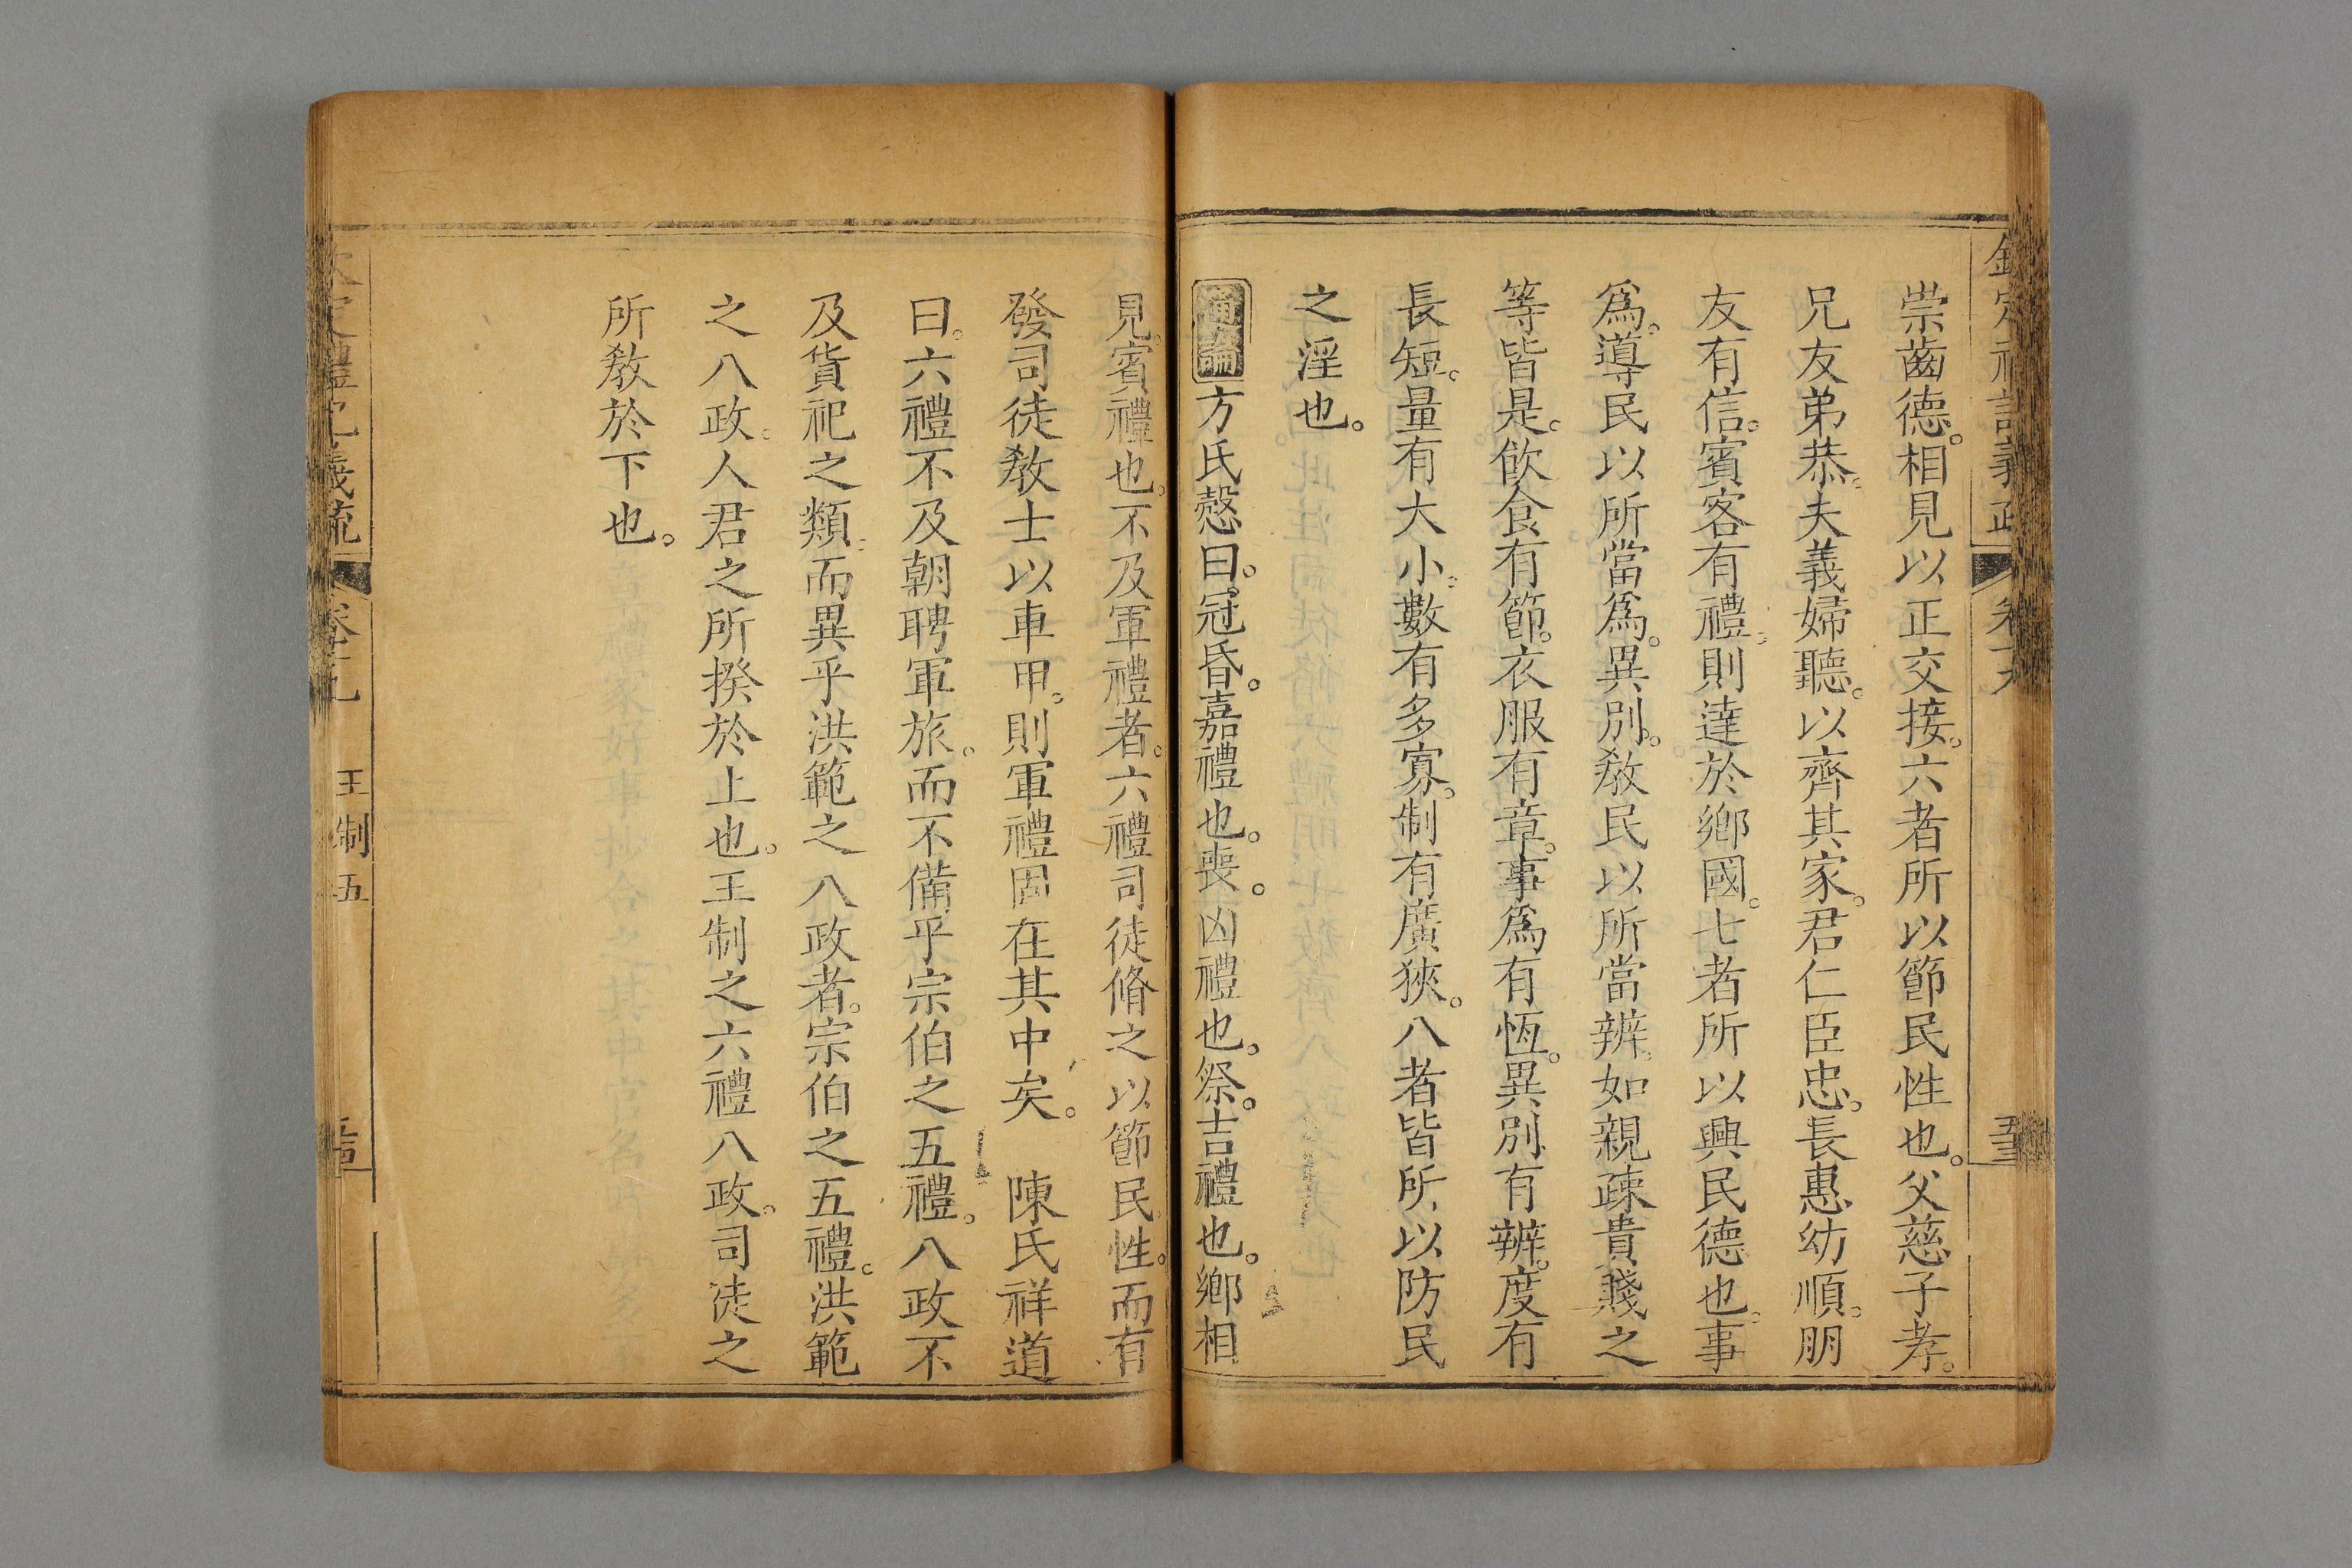 崇齒德。相見以正交接。六者所以節民性也。父慈子孝。
兄友弟恭。夫義婦聽。以齊其家。君仁臣忠。長惠幼順。朋
友有信。賓客有禮。則達於鄉國。七者所以興民德也。事
爲。導民以所當爲。異別。敎民以所當辨。如親疎貴賤之
等皆是。飮食有節。衣服有章。事爲有恆。異別有辨。度有
長短。量有大小。數有多寡。制有廣狹。八者皆所以防民
之淫也。
通論方氏慤曰。冠昏。嘉禮也。喪。凶禮也。祭。吉禮也。鄉相
見。賓禮也。不及軍禮者。六禮司徒脩之以節民性。而有
發司徒敎士以車甲。則軍禮固在其中矣。 陳氏祥道
曰。六禮不及朝聘軍旅。而不備乎宗伯之五禮。八政不
及貨祀之類。而異乎洪範之八政者。宗伯之五禮。洪範
之八政。人君之所揆於上也。王制之六禮八政。司徒之
所敎於下也。
王制五